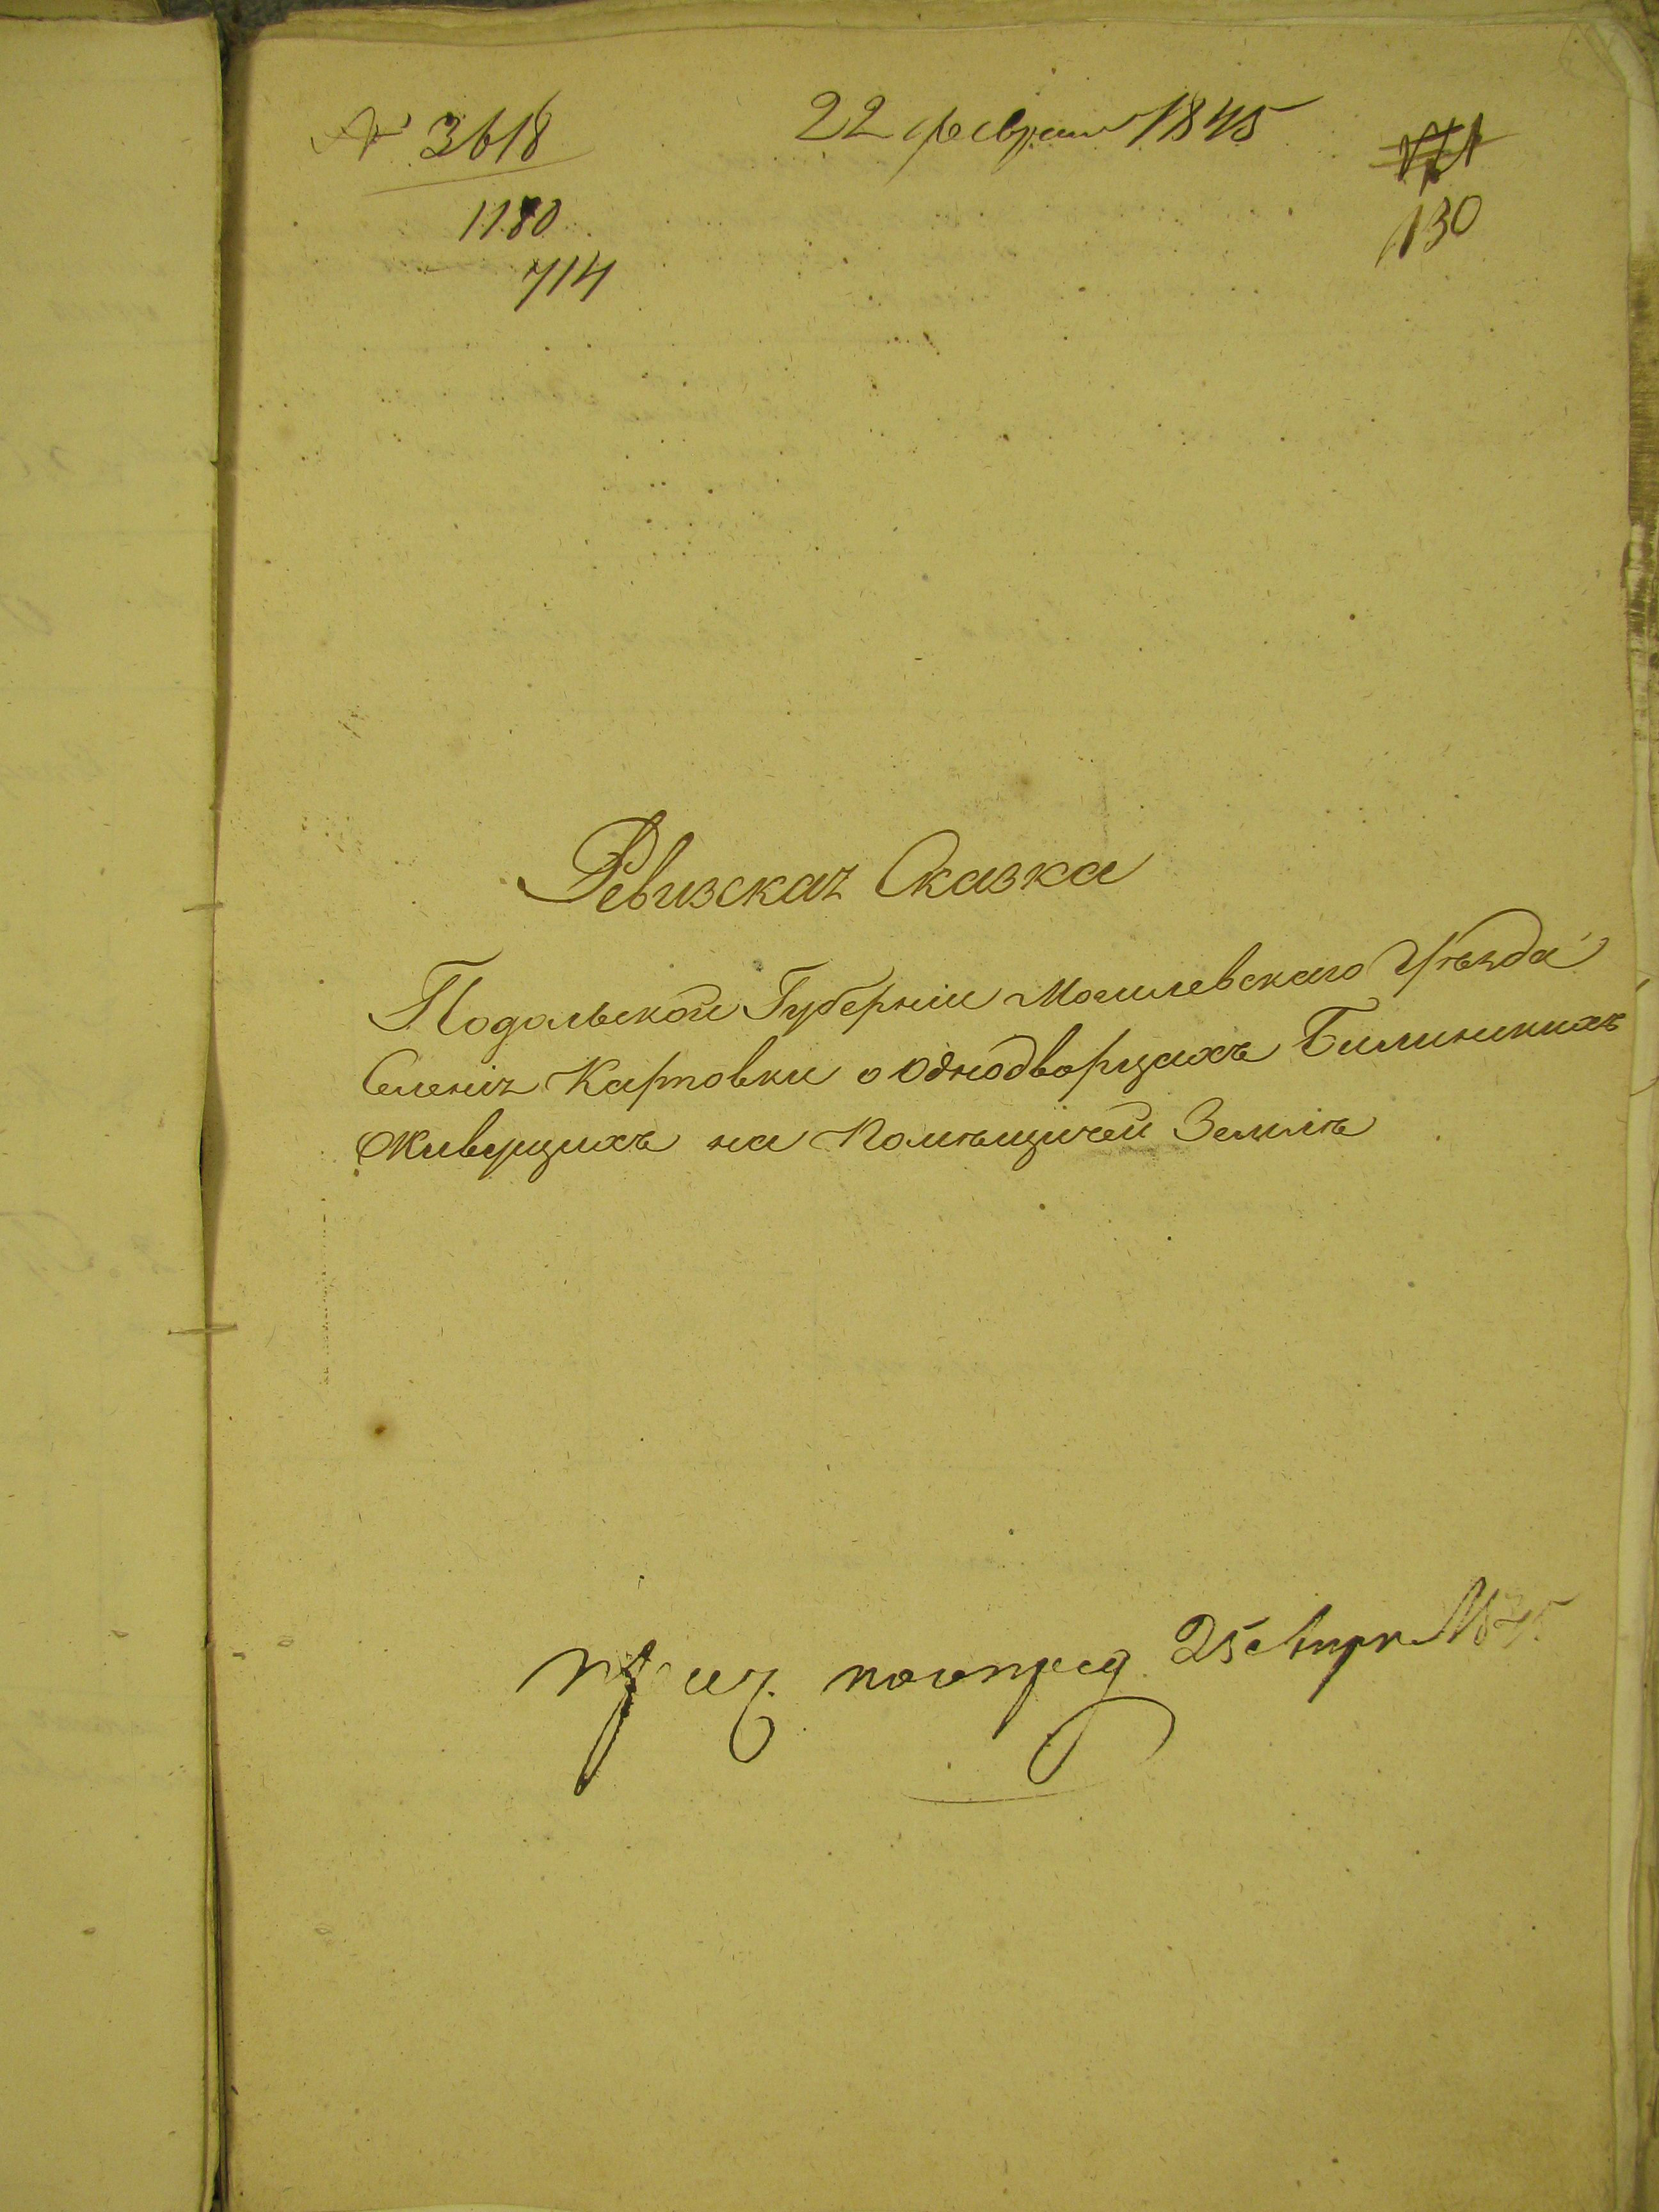 № 3618
22 февраля 1845
1180
130
714
Ревизская Сказка
Подольской Губерніи Могилевскаго Уѣзда
Селенія Карповки о Однодворцахъ Билинскихъ
Живущихъ на Помѣщичей Землѣ
25 Апр